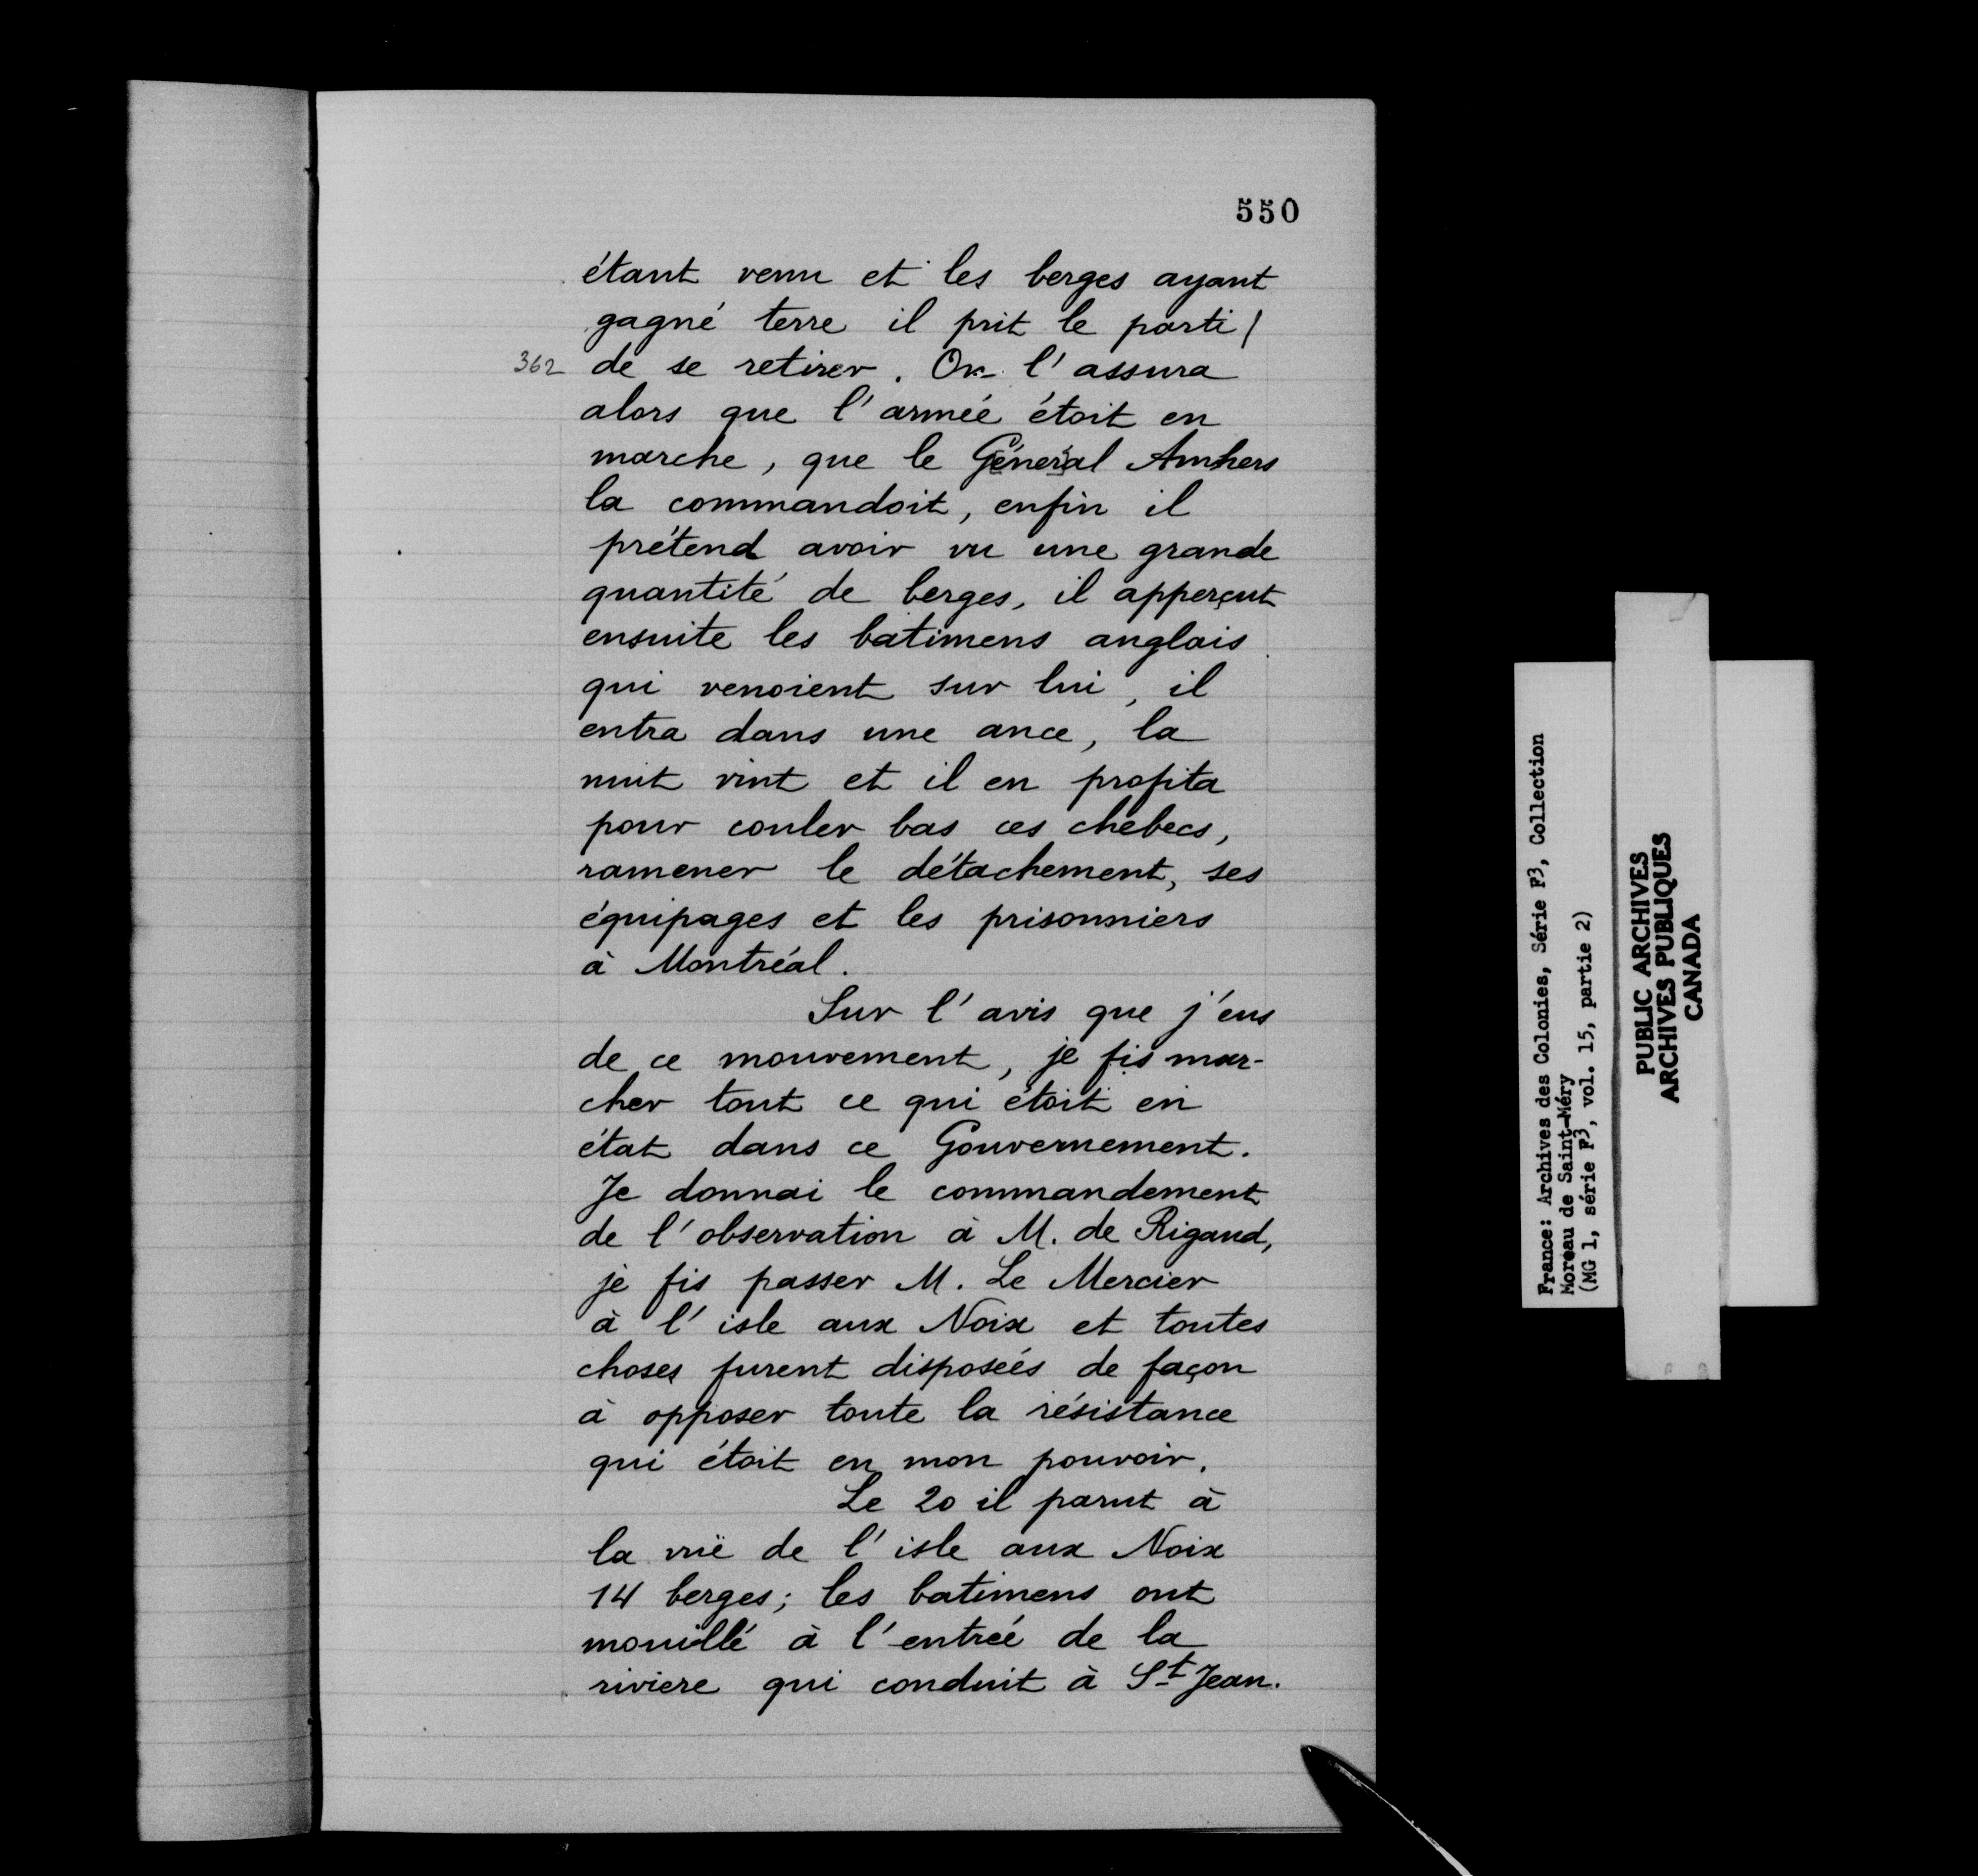 550
étant venu et les berges ayant
gagné terre il prit le parti /
362 de se retirer. On l'assura
alors que l'armée étoit en
marche, que le Général Amhers
la commandoit, enfin il
prétend avoir vu une grande
quantité de berges, il apperçut
ensuite les batimens anglais
qui venoient sur lui, il
entra dans une ance, la
nuit vint et il en profita
pour couler bas ces chebecs,
ramener le détachement, ses
équipages et les prisonniers
à Montréal.
Sur l'avis que j'eus
de ce mouvement, je fis mar-
cher tout ce qui étoit en
état dans ce Gouvernement.
Je donnai le commandement
de l'observation à M. de Rigaud,
je fis passer M. Le Mercier
à l'isle aux Noix et toutes
choses furent disposées de façon
à opposer toute la résistance
qui étoit en mon pouvoir.
Le 20 il parut à
la vuë de l'isle aux Noix
14 berges; les batimens ont
mouillé à l'entrée de la
riviere qui conduit à St Jean.
France: Archives des Colonies, Série F3, Collection
Moreau de Saint-Méry
(MG 1, série F3, vol. 15, partie 2)
PUBLIC ARCHIVES
ARCHIVES PUBLIQUES
CANADA